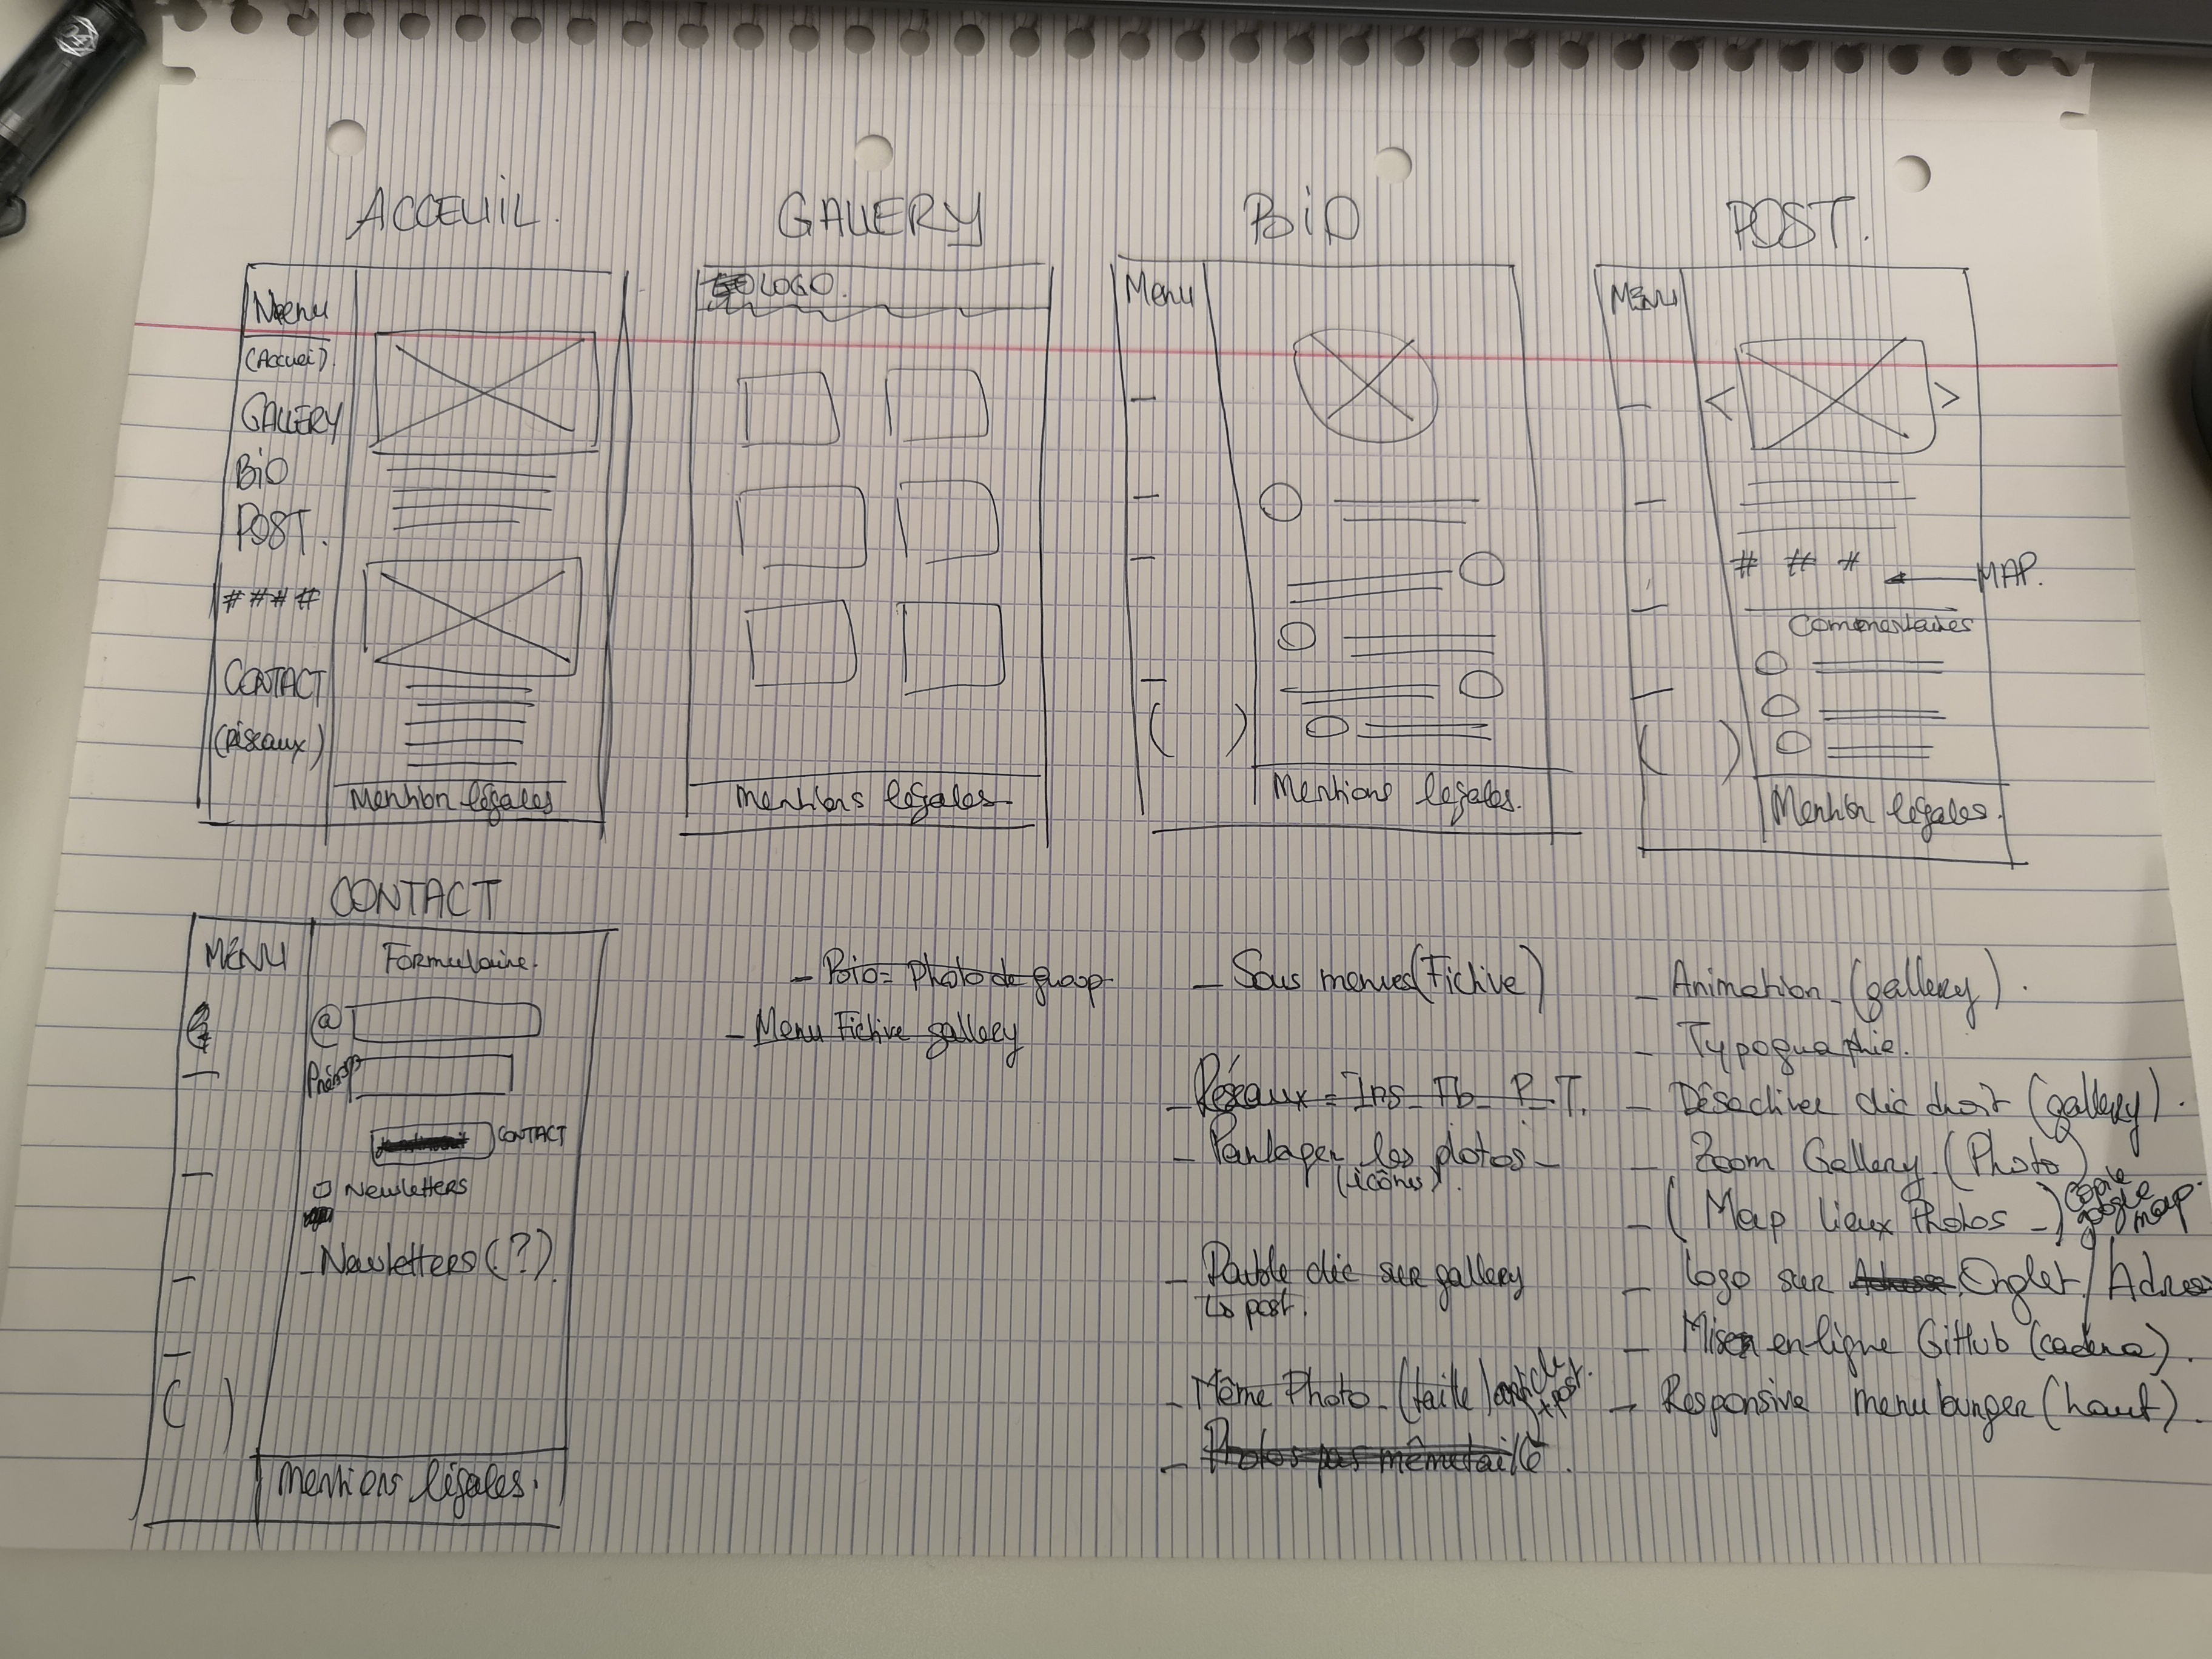 ACCEUIIL.
Menu
(Accuei).
GALLERY
BiO
POST.
# # # #
CONTACT
(réseaux)
Mention légales
GALLERY
LOGO.
mentions légales
BiO
Menu
( )
Mentions légales.
POST.
MENU
< >
# # #
MAP.
Commentaires
( )
Mention légales.
CONTACT
MENU
Formulaire.
@
CONTACT
Newletters
- Newletters (?)
( )
mentions légales.
- Bio = Photo de group
- Menu Fictive gallery
- Sous menues (Fictive)
- Réseaux = Ins - Fb - P - T.
- Partager les photos -
(icônes).
- Double clic sur gallery
↳ post.
- Même Photo - (taille)
- Photos pas même taille.
- Animation - (gallery).
- Typographie.
- Désactiver clic droit (gallery).
- Zoom Gallery (Photo)
- (Map lieux Photos -) copie google map.
- logo sur Adresse Onglet / Adress
- Mise en ligne GitHub (cadena).
- Responsive menu burger (haut).